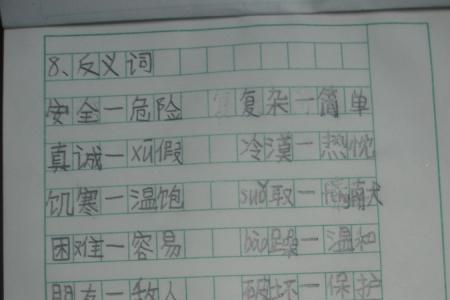 8、反义词
安全—危险 复杂—简单
真诚—xū假 冷漠—热忱
饥寒—温饱 suǒ取—献
困难—容易 bào躁—温和
朋友—敌人 破坏—保护